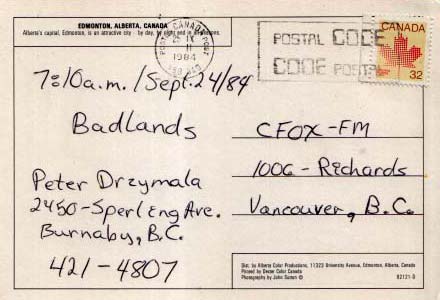 EDMONTON, ALBERTA, CANADA
Alberta's capital, Edmonton, is an attractive city - by day, by night and in all seasons.
POSTES CANADA POST
IX
11
1984
POSTAL CODE
CODE POSTAL
CANADA
32
7:10a.m./Sept.24/84
Badlands
Peter Drzymala
2450-Sperling Ave.
Burnaby, B.C.
421-4807
CFOX-FM
1006-Richards
Vancouver, B.C.
Dist. by Alberta Color Productions, 11323 University Avenue, Edmonton, Alberta, Canada
Printed by Dexter Color Canada
Photography by John Sutton ©
92121-D